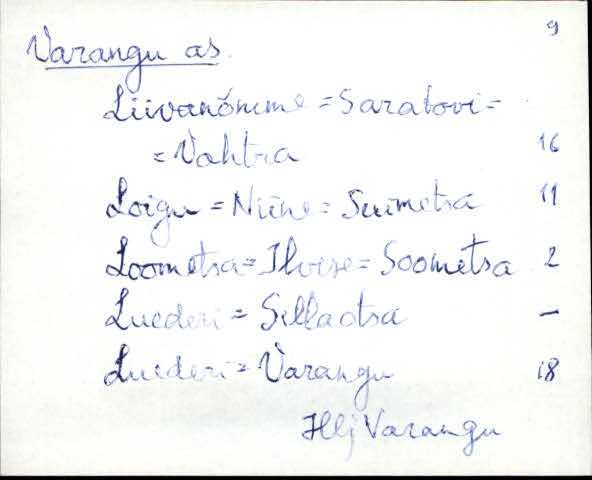 9
Varangu as.
Liivanõmme = Saratovi =
= Vahtra 16
Loigu = Niine = Suimetsa 11
Loometsa = Ilvese = Soometsa 2
Luederi = Sillaotsa —
Luederi = Varangu 18
Hlj Varangu